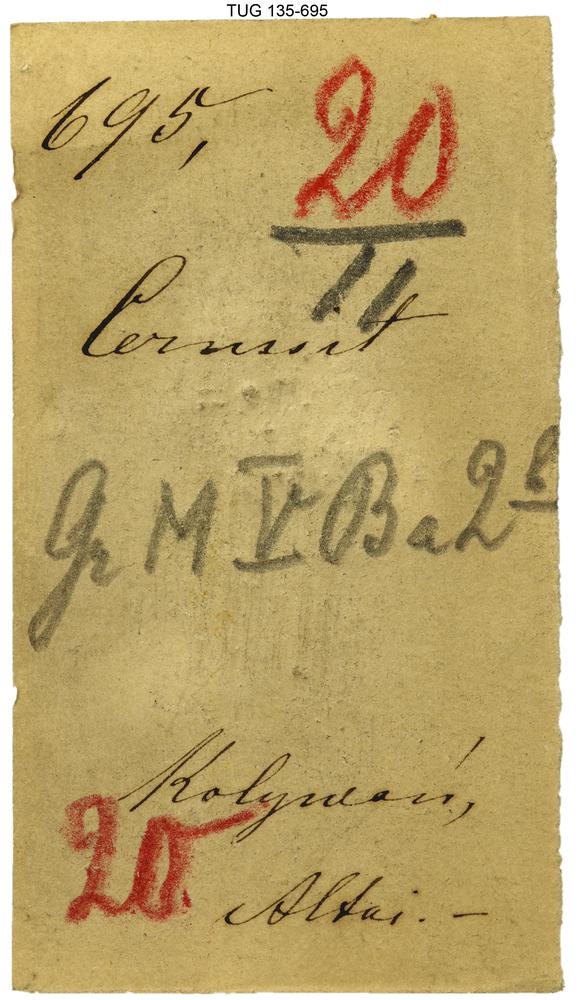 TUG 135-695
695,
20
11
Cerussit
Gr M V Ba 2
Kolywań,
20
Altai. –